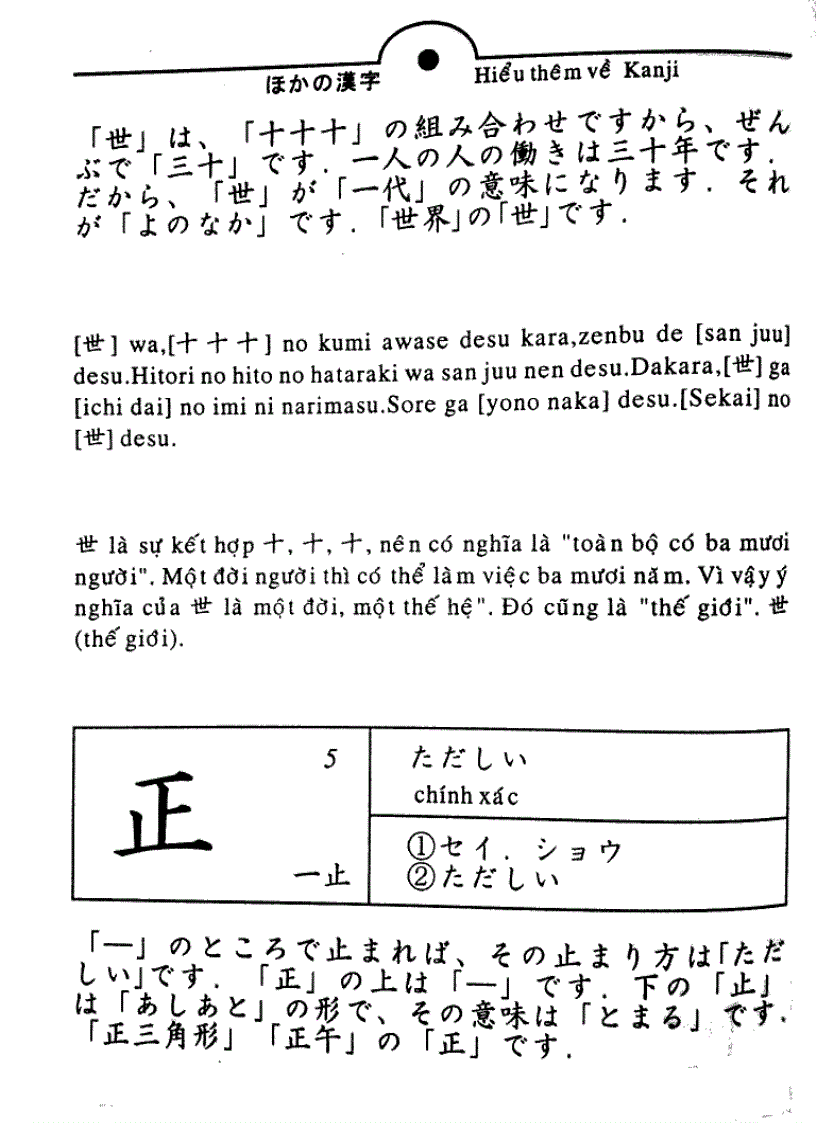 ほかの漢字
Hiểu thêm về Kanji
「世」は、「十十十」の組み合わせですから、ぜん
ぶで「三十」です. 一人の人の働きは三十年です.
だから、「世」が「一代」の意味になります. それ
が「よのなか」です. 「世界」の「世」です.
[世] wa,[十 十 十] no kumi awase desu kara,zenbu de [san juu]
desu.Hitori no hito no hataraki wa san juu nen desu.Dakara,[世] ga
[ichi dai] no imi ni narimasu.Sore ga [yono naka] desu.[Sekai] no
[世] desu.
世 là sự kết hợp 十, 十, 十, nên có nghĩa là "toàn bộ có ba mươi
người". Một đời người thì có thể làm việc ba mươi năm. Vì vậy ý
nghĩa của 世 là một đời, một thế hệ". Đó cũng là "thế giới". 世
(thế giới).
正
5
一止
ただしい
chính xác
①セイ. ショウ
②ただしい
「一」のところで止まれば、その止まり方は「ただ
しい」です. 「正」の上は「一」です. 下の「止」
は「あしあと」の形で、その意味は「とまる」です.
「正三角形」「正午」の「正」です.